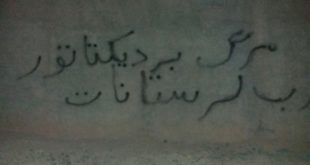 مرگ بر دیکتاتور
رب لرستانات